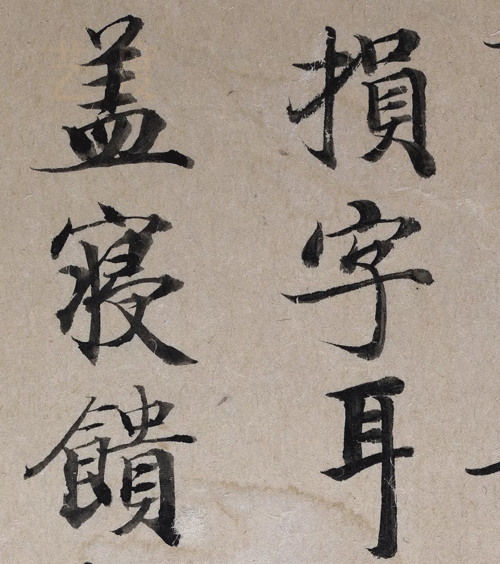 損字耳
盖寝饋